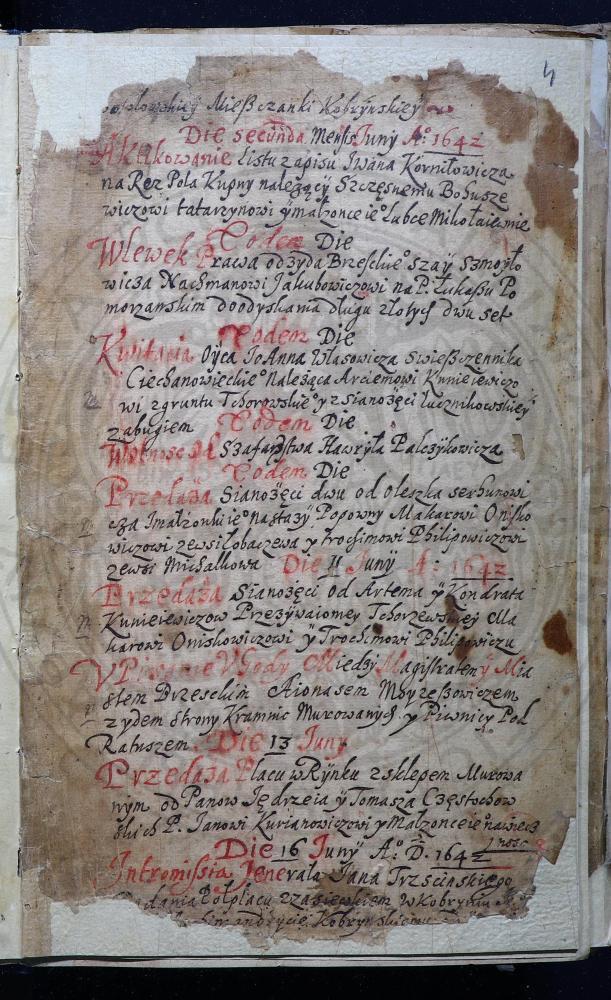 4
Mießczanki Kobrynskiey
Die secunda Mensis Juny Aº 1642
Aktikowanie listu zapisu Iwana Korniłowicza
na Rez Pola Kupny należący Szczęsnemu Bohusze
wiczowi tatarzynowi ÿ małzonce ieº Łubce Mikołaiewnie
Eodem Die
Wlewek Prawa od żyda Brzeskieº Szai Szmoyło
wicza Nachmanowi Jakubowiczowi na P. Łukaszu Po
morzanskim do odyskania długu złotych dwu set
Eodem Die
Kwitacia Oyca Joanna Własowicza Swießczennika
Ciechanowieckieº Należąca Arciemowi Kuniejewiczo
wi z gruntu Tchorowskieº y z sianożęci łucznikowskiey
zabugiem Eodem Die
Wolność Szafarstwa Hawryła Palczykowicza
Eodem Die
Przedaża Sianożęci dwu od Oleszka Serhunowi
cza I małżonki ieº Nastazÿ Popowny Makarowi Onisko
wiczowi ze wsi Łobaczewa y Trochimowi Philipowiczowi
ze wsi Michałkowa Die 11 Juny A: 1642
Przedaża Sianożęci od Artema ÿ Kondrata
Kuniejewiczow Przezywaiomey Tchorzewskiey Ma
karowi Oniskowiczowi ÿ Trochimowi Philipowiczu
VPiwnie VGody Miedzy Magistratem ÿ Mia
stem Brzeskim A Jonasem Moyzeßowiczem
zydem strony Kramnic Murowanych y Piwnicy Pod
Ratuszem Die 13 Juny
Przedaża Placu w Rynku z sklepem Murowa
nym od Panow Jędrzeia ÿ Tomasza Częstochow
skich P. Janowi Kurianowiczowi y Małżonce ieº na wiecz
nosc
Die 16 Junÿ Aº D. 1642
Intromissia Jenerała Jana Trzscinskiego
podania Połplacu z zasiewkiem w Kobryniu
Kobrynskiemu